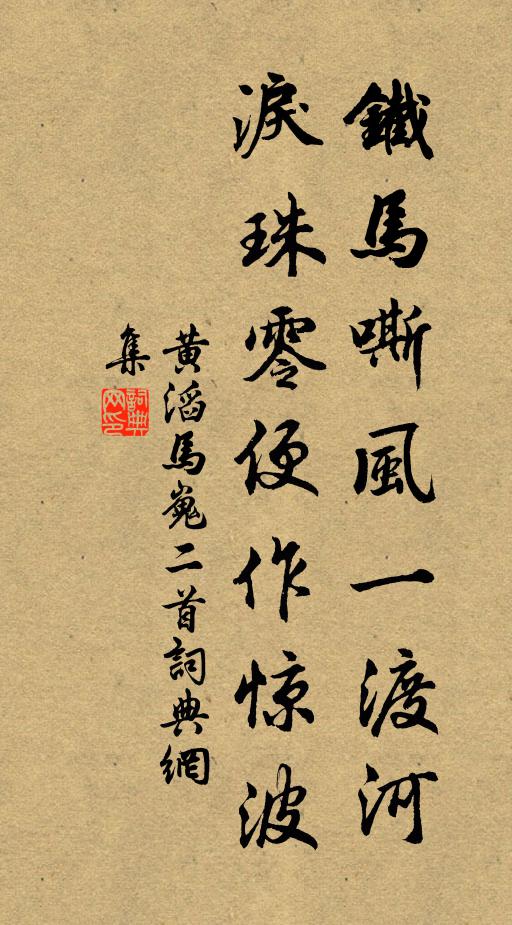 鐵馬嘶風一渡河
淚珠零便作惊波
黄滔馬嵬二首詞典網
集
詞典網印